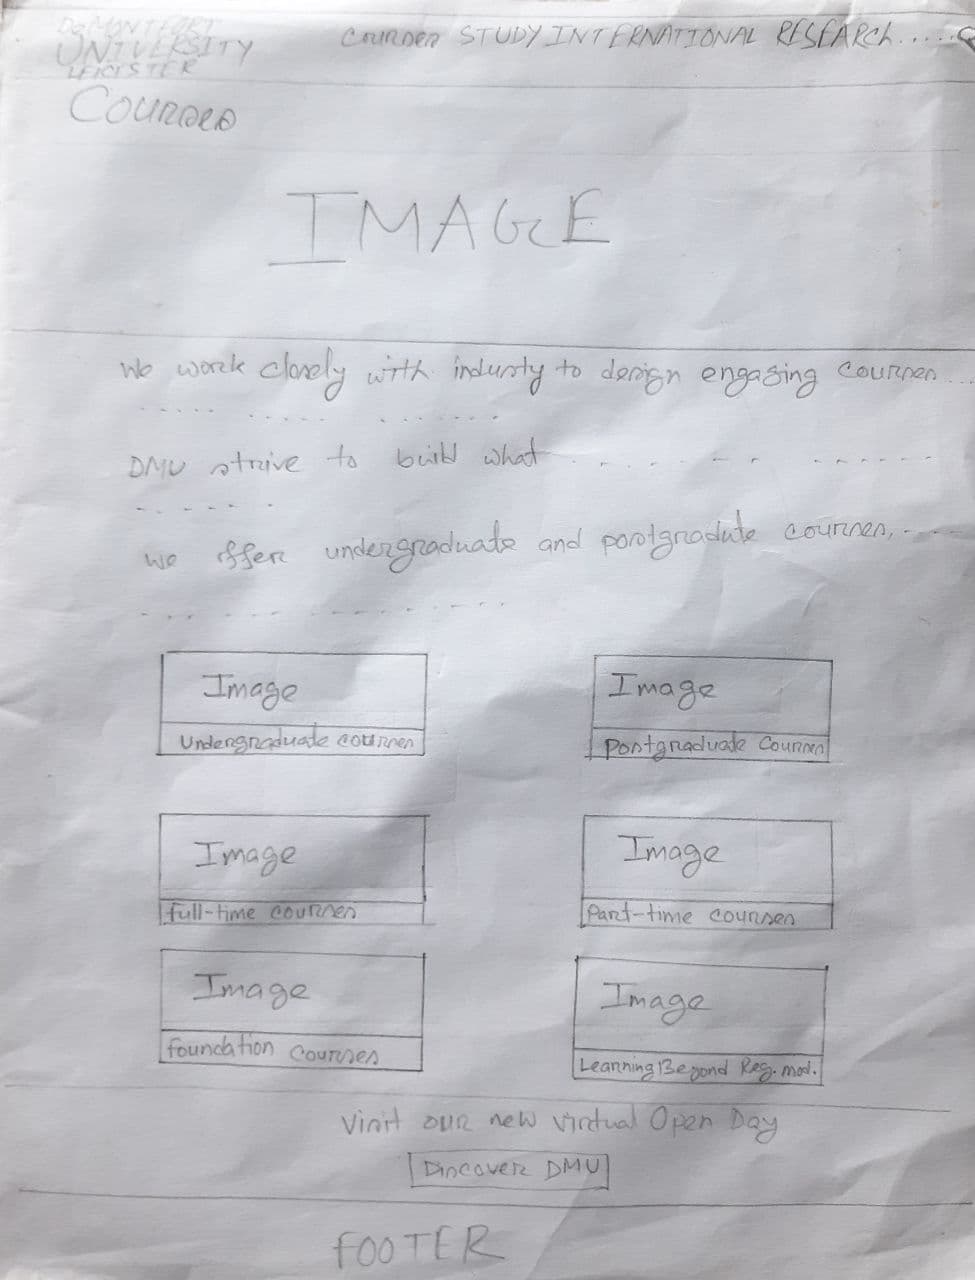 DE MONTFORT
UNIVERSITY
LEICISTER
COURSES STUDY INTERNATIONAL RESEARCH.....
Courses
IMAGE
We work closely with industy to design engaging courses...
DMU strive to build what
We offer undergraduate and postgradute courses,
Image
Image
Undergraduate courses
Postgraduate Courses
Image
Image
full-time courses
Part-time courses
Image
Image
foundation courses
Learning Beyond Reg. mod.
Visit our new virtual Open Day
Discover DMU
FOOTER